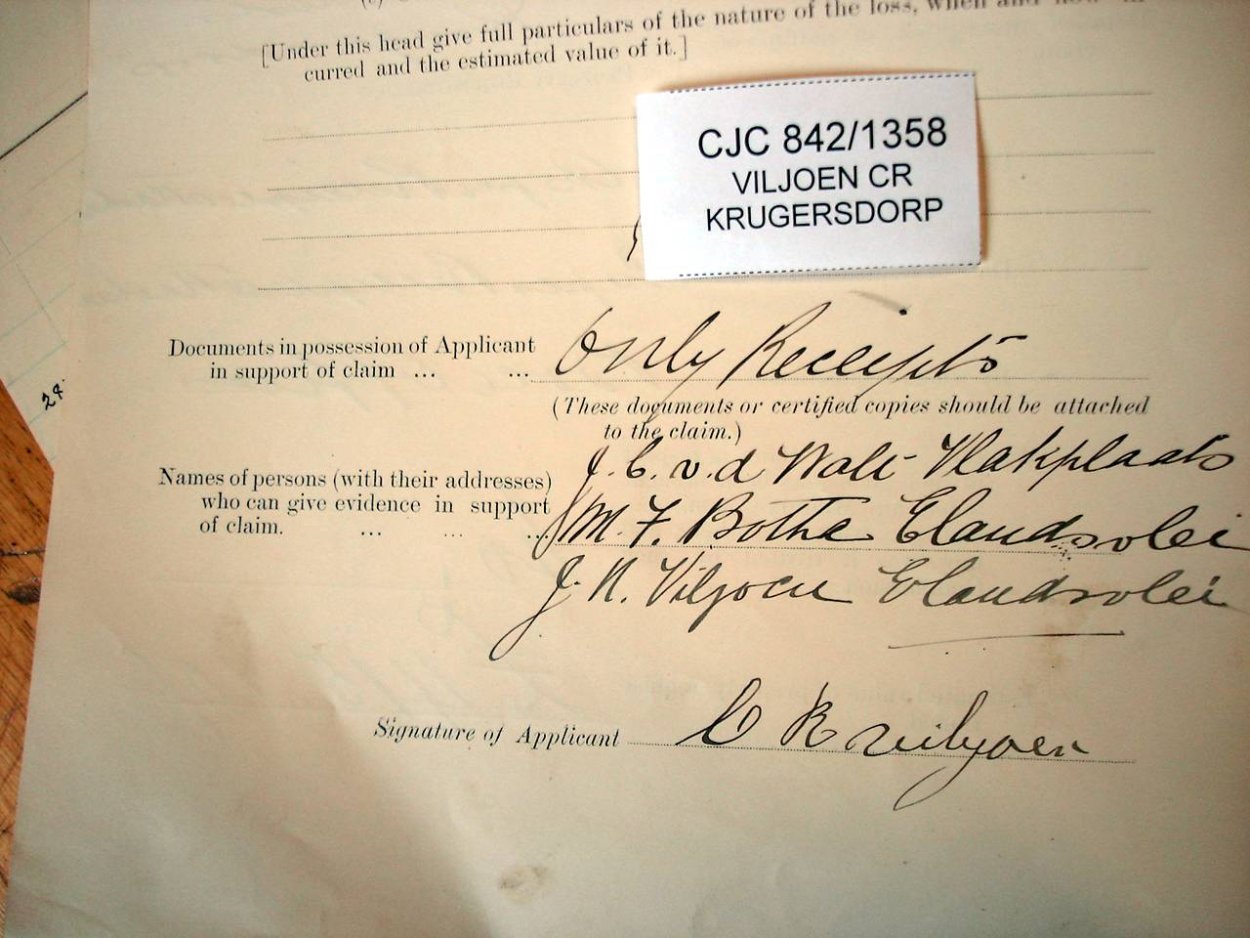 [Under this head give full particulars of the nature of the loss, when and how in-
curred and the estimated value of it.]
CJC 842/1358
VILJOEN CR
KRUGERSDORP
Documents in possession of Applicant
in support of claim ... ... Only Receipts
(These documents or certified copies should be attached
to the claim.)
J. C. v. d Walt Vlakplaats
Names of persons (with their addresses)
who can give evidence in support
of claim. ... ... ... M. F. Botha Elandsvlei
J. N. Viljoen Elandsvlei
Signature of Applicant C R Viljoen
24